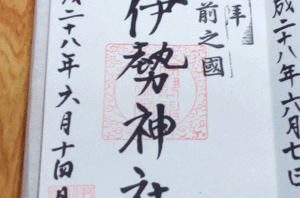 成二十八年六月七日
拝
前之國
伊勢神社
成二十八年六月十四日